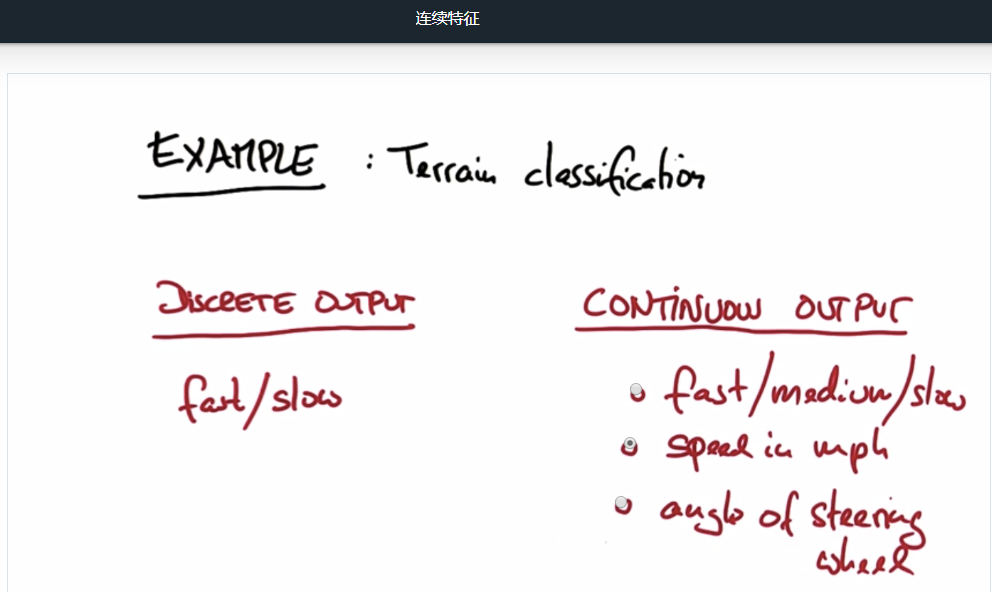 连续特征
EXAMPLE : Terrain classification
DISCRETE OUTPUT
CONTINUOUS OUTPUT
fast/slow
fast/medium/slow
speed in mph
angle of steering
wheel